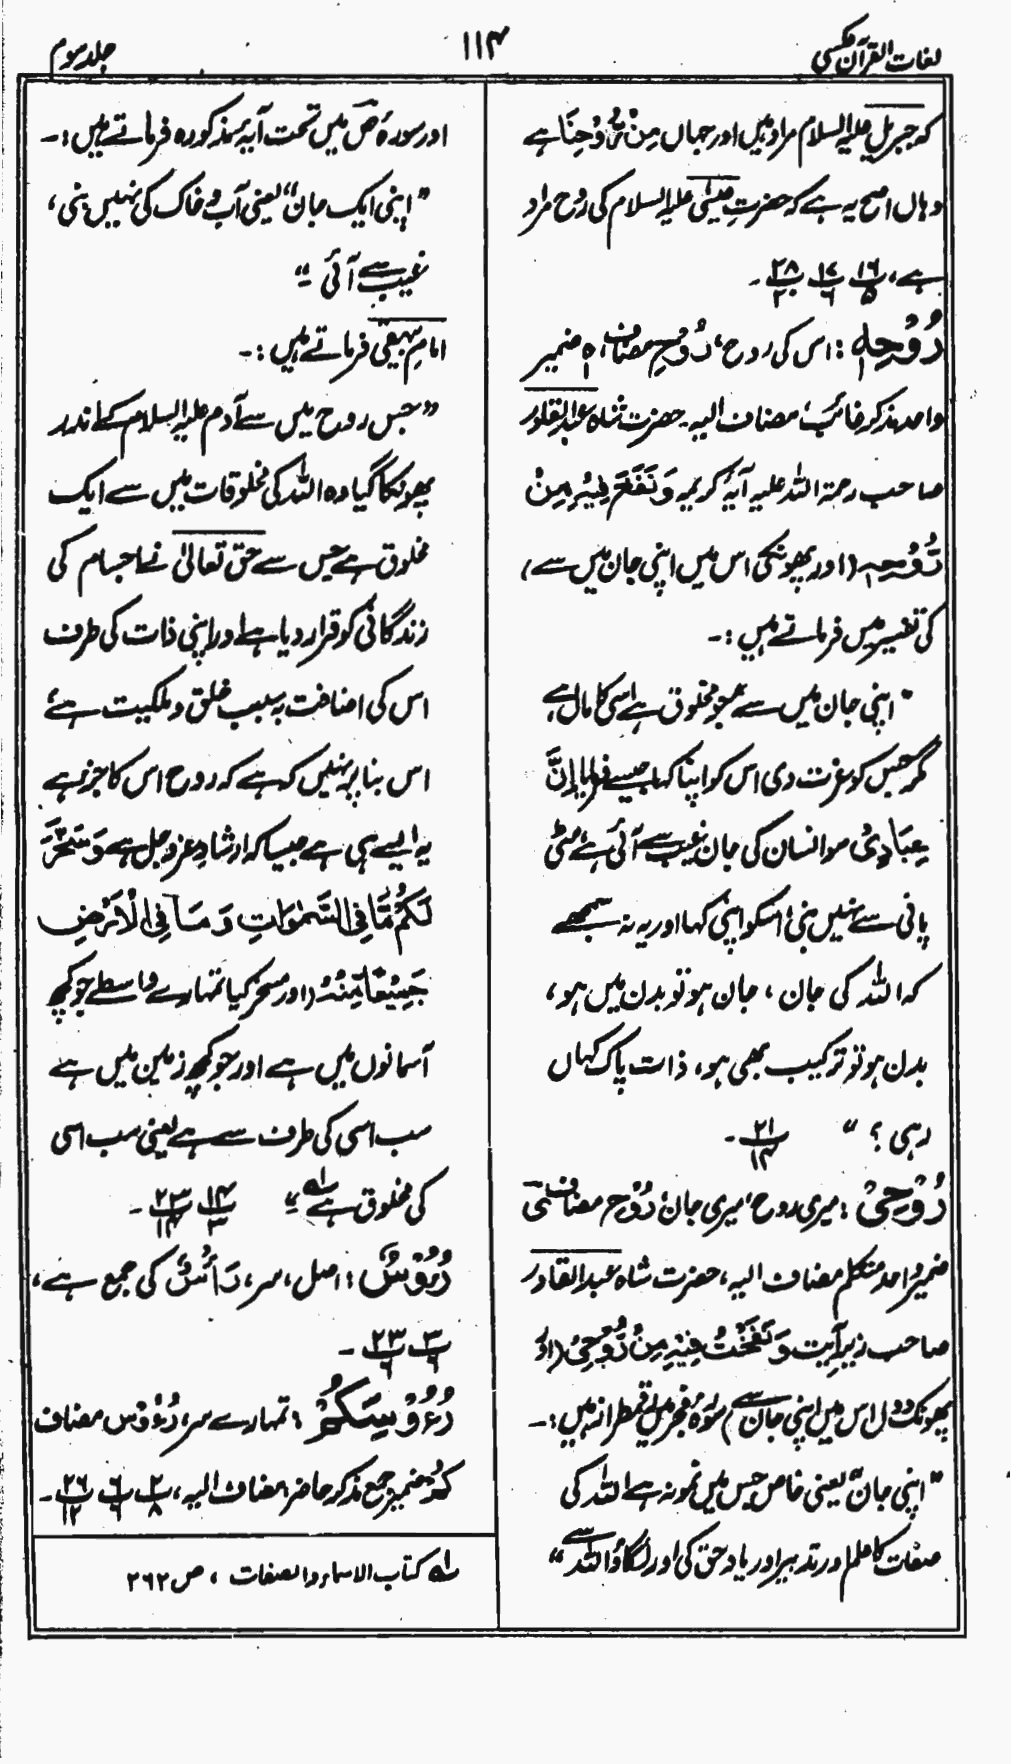 لغات القرآن عکسی
۱۱۴
جلد سوم
کہ جبریل علیہ السلام مراد ہیں اور جہاں مِنْ رُّوْحِنَا ہے
وہاں اصح یہ ہے کہ حضرتِ عیسٰی علیہ السلام کی روح مراد
ہے، ۱۶/۵ ۱۷/۶ ۲۸/۲ ۔
رُوْحِہٖ : اس کی روح، رُوْحِ مضاف، ہٖ ضمیر
واحد مذکر غائب، مضاف الیہ۔ حضرت شاہ عبدالقادر
صاحب رحمۃ اللہ علیہ آیۂ کریمہ وَنَفَخَ فِیْہِ مِنْ
رُّوْحِہٖ (اور پھونکی اس میں اپنی جان میں سے)
کی تفسیر میں فرماتے ہیں :۔
"اپنی جان میں سے جو مخلوق ہے اسی کا مال ہے
مگر جس کو عزت دی اس کو اپنا کہا جیسے فرمایا اِنَّ
عِبَادِیْ سو انسان کی جان غیب سے آئی ہے مٹی
پانی سے نہیں بنی اسکو اپنی کہا اور یہ نہ سمجھے
کہ اللہ کی جان ، جان ہو تو بدن میں ہو،
بدن ہو تو ترکیب بھی ہو، ذات پاک کہاں
رہی ؟ " ۲۱/۱۴ ۔
رُوْحِیْ : میری روح، میری جان، رُوْحِ مضاف یْ
ضمیر واحد متکلم مضاف الیہ، حضرت شاہ عبدالقادر
صاحب زیرِ آیت وَنَفَخْتُ فِیْہِ مِنْ رُّوْحِیْ (اور
پھونک دوں اس میں اپنی جان سے) سورۂ حجر میں رقمطراز ہیں :۔
"اپنی جان" یعنی خاص جس میں نمونہ ہے اللہ کی
صفات کا علم اور تدبیر اور یاد حق کی اور لگاؤ اللہ سے"
اور سورۂ صٓ میں تحت آیہ مذکورہ فرماتے ہیں :۔
"اپنی ایک جان" یعنی آب و خاک کی نہیں بنی،
غیب سے آئی "
امام بیہقی فرماتے ہیں :۔
"جس روح میں سے آدم علیہ السلام کے اندر
پھونکا گیا وہ اللہ کی مخلوقات میں سے ایک
مخلوق ہے جس سے حق تعالیٰ نے اجسام کی
زندگانی کو قرار دیا ہے اور اپنی ذات کی طرف
اس کی اضافت بہ سبب خلق و ملکیت ہے
اس بنا پر نہیں کہ ہے کہ روح اس کا جز ہے
یہ ایسے ہی ہے جیسا کہ ارشادِ عزوجل ہے وَسَخَّرَ
لَکُمْ مَّا فِی السَّمٰوَاتِ وَمَا فِی الْاَرْضِ
جَمِیْعًا مِّنْہُ (اور مسخر کیا تمہارے واسطے جو کچھ
آسمانوں میں ہے اور جو کچھ زمین میں ہے
سب اسی کی طرف سے ہے یعنی سب اسی
کی مخلوق ہے" لہ ۱۴/۳ ۲۳/۱۴ ۔
رُؤُوْسُ : اصل، سر، رَأْسٌ کی جمع ہے،
۳/۶ ۲۳/۶ ۔
رُءُوْسِکُمْ : تمہارے سر، رُءُوْس مضاف
کُمْ ضمیر جمع مذکر حاضر مضاف الیہ، ۲/۸ ۶/۶ ۲۶/۱۲ ۔
لہ کتاب الاسماء والصفات ، ص ۲۶۲